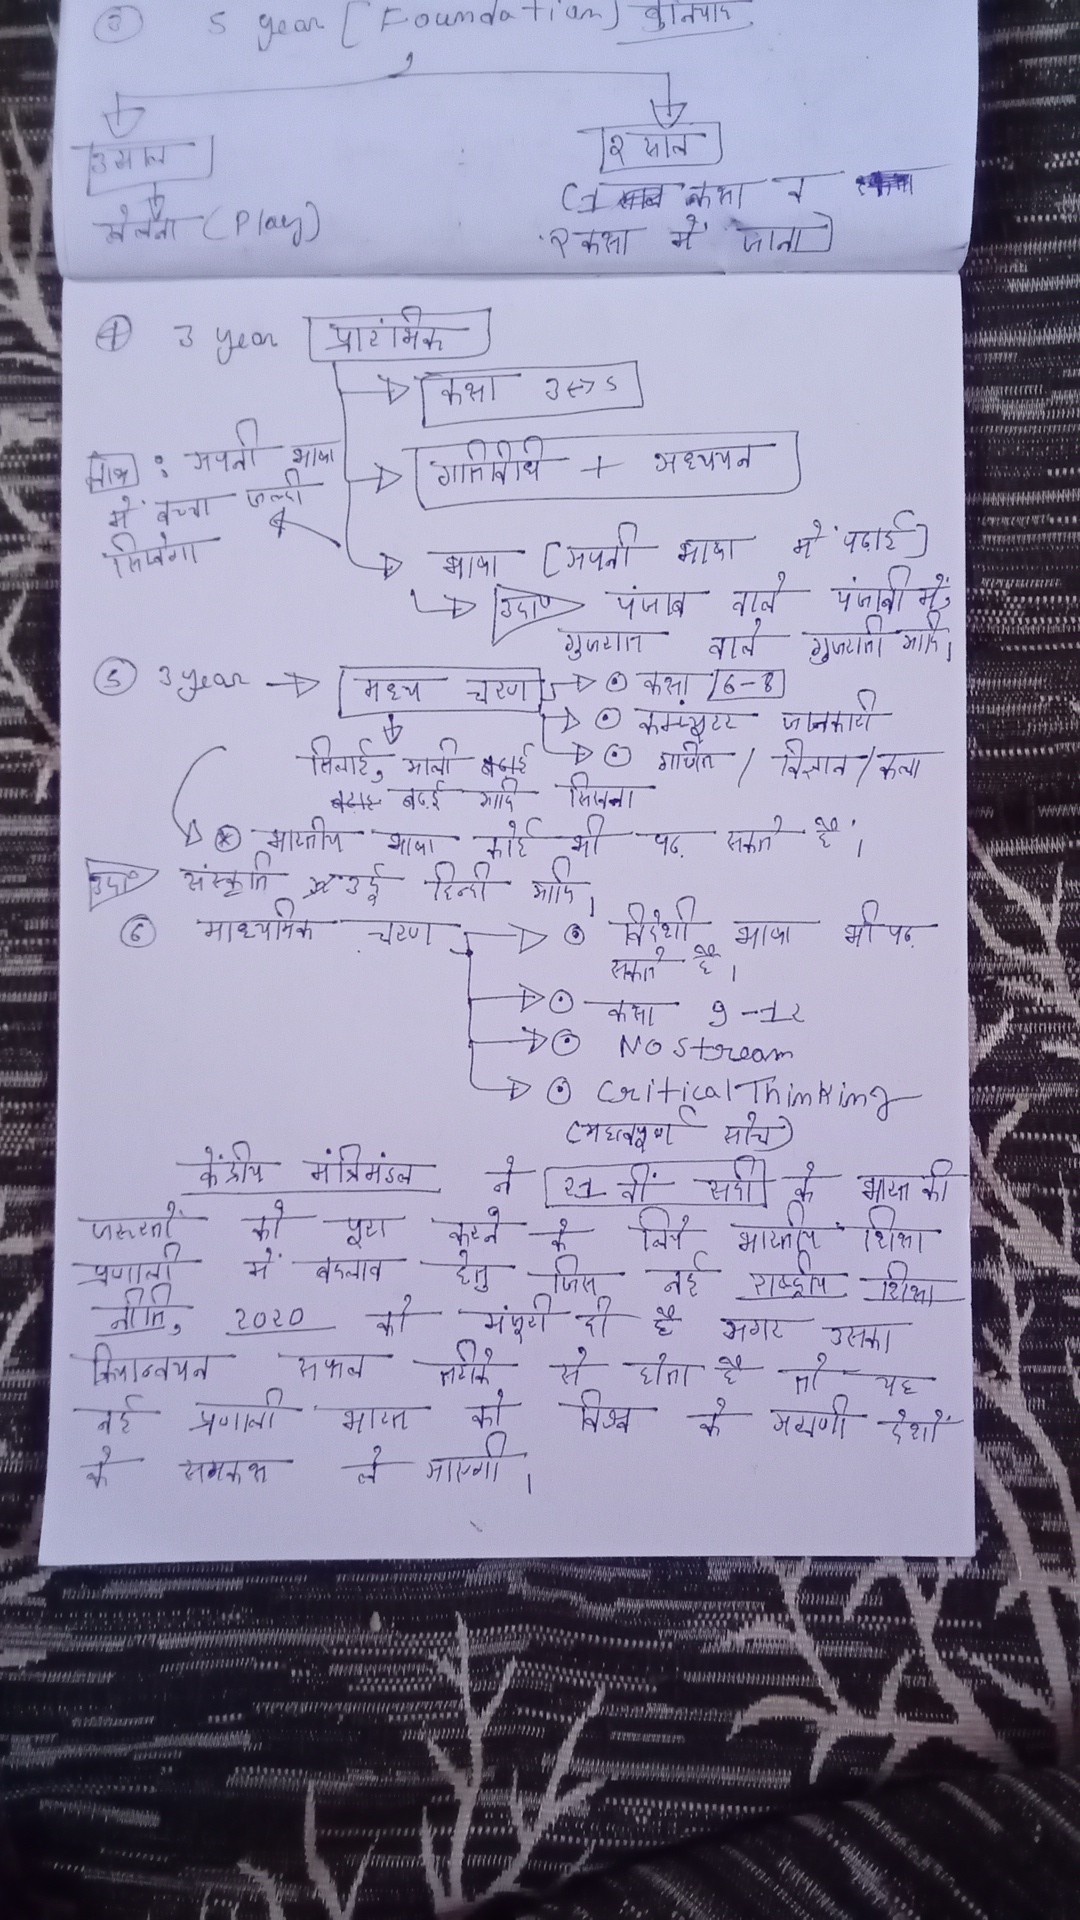 ③ 5 year [Foundation] बुनियाद
3 साल
२ साल
खेलना (Play)
(1 कक्षा व
२ कक्षा में जाना)
④ 3 year प्रारंभिक
कक्षा 3 से 5
गतिविधि + अध्ययन
लाभ : अपनी भाषा
में बच्चा जल्दी
सिखेगा
भाषा [अपनी भाषा में पढाई]
उदा० पंजाब वाले पंजाबी में,
गुजरात वाले गुजराती आदि।
⑤ 3 year → मध्य चरण
⊙ कक्षा 6-8
⊙ कम्प्यूटर जानकारी
⊙ गणित / विज्ञान / कला
सिलाई, माली
बढ़ई आदि सिखना
* भारतीय भाषा कोई भी पढ़ सकते हैं।
उदा० संस्कृति उर्दू हिन्दी आदि।
⑥ माध्यमिक चरण
⊙ विदेशी भाषा भी पढ़
सकते है।
⊙ कक्षा 9-12
⊙ NO Stream
⊙ Critical Thinking
(महत्वपूर्ण सोच)
केंद्रीय मंत्रिमंडल ने 21 वीं सदी के भारत की
जरूरतों को पूरा करने के लिये भारतीय शिक्षा
प्रणाली में बदलाव हेतु जिस नई राष्ट्रीय शिक्षा
नीति, 2020 को मंजूरी दी है अगर उसका
क्रियान्वयन सफल तरीके से होता है तो यह
नई प्रणाली भारत को विश्व के अग्रणी देशों
के समकक्ष ले आएगी।